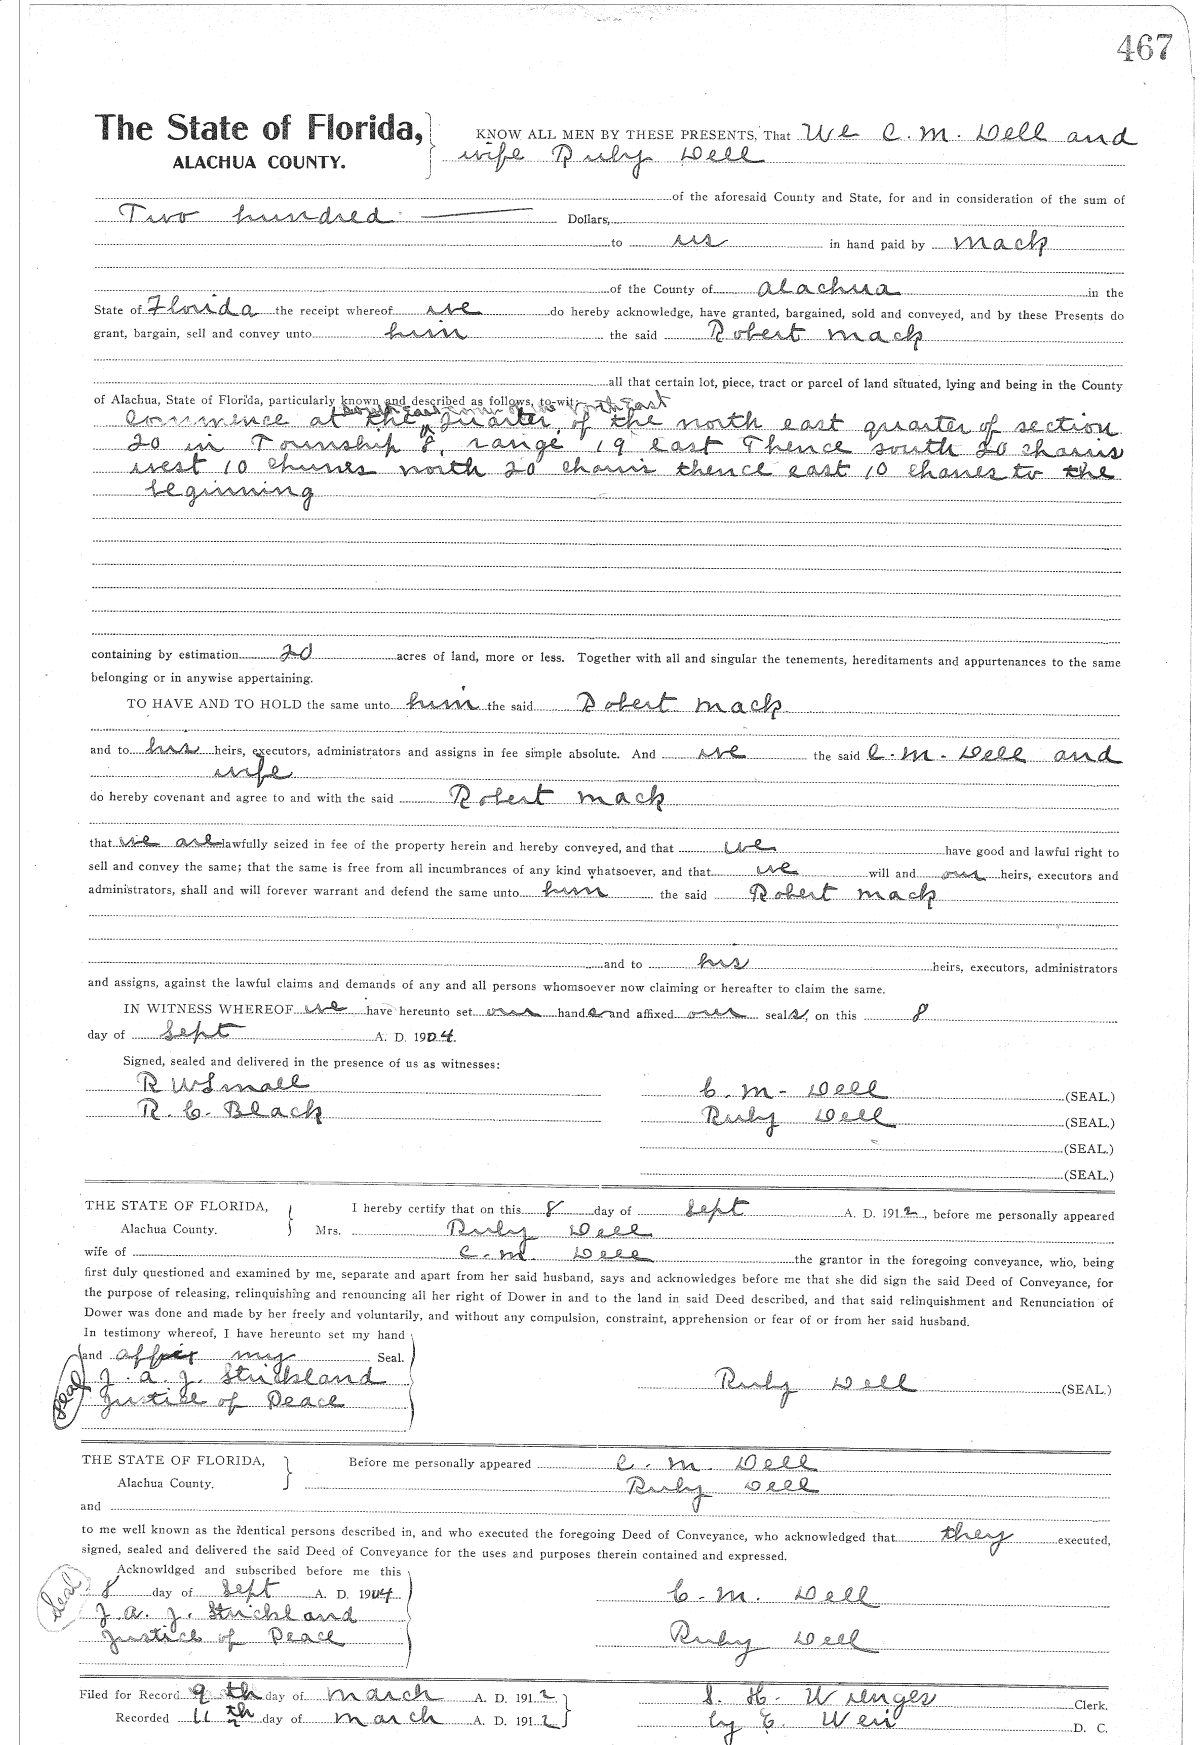 467
The State of Florida, KNOW ALL MEN BY THESE PRESENTS, That We C. M. Dell and
ALACHUA COUNTY. wife Ruby Dell
of the aforesaid County and State, for and in consideration of the sum of
Two hundred Dollars,
to us in hand paid by Mack
of the County of Alachua in the
State of Florida the receipt whereof we do hereby acknowledge, have granted, bargained, sold and conveyed, and by these Presents do
grant, bargain, sell and convey unto him the said Robert Mack
all that certain lot, piece, tract or parcel of land situated, lying and being in the County
of Alachua, State of Florida, particularly known and described as follows, to-wit:
South East corner of the North East
Commence at the quarter of the north east quarter of section
20 in Township 8, range 19 east Thence south 20 chains
west 10 chanes north 20 chains thence east 10 chanes to the
beginning
containing by estimation 20 acres of land, more or less. Together with all and singular the tenements, hereditaments and appurtenances to the same
belonging or in anywise appertaining.
TO HAVE AND TO HOLD the same unto him the said Robert Mack
and to his heirs, executors, administrators and assigns in fee simple absolute. And we the said C. M. Dell and
wife
do hereby covenant and agree to and with the said Robert Mack
that we are lawfully seized in fee of the property herein and hereby conveyed, and that we have good and lawful right to
sell and convey the same; that the same is free from all incumbrances of any kind whatsoever, and that we will and our heirs, executors and
administrators, shall and will forever warrant and defend the same unto him the said Robert Mack
and to his heirs, executors, administrators
and assigns, against the lawful claims and demands of any and all persons whomsoever now claiming or hereafter to claim the same.
IN WITNESS WHEREOF we have hereunto set our hands and affixed our seals, on this 8
day of Sept A. D. 1904.
Signed, sealed and delivered in the presence of us as witnesses:
R W Small C. M. Dell (SEAL.)
R. C. Black Ruby Dell (SEAL.)
(SEAL.)
(SEAL.)
THE STATE OF FLORIDA, I hereby certify that on this 8 day of Sept A. D. 1912, before me personally appeared
Alachua County. Mrs. Ruby Dell
wife of C. M. Dell the grantor in the foregoing conveyance, who, being
first duly questioned and examined by me, separate and apart from her said husband, says and acknowledges before me that she did sign the said Deed of Conveyance, for
the purpose of releasing, relinquishing and renouncing all her right of Dower in and to the land in said Deed described, and that said relinquishment and Renunciation of
Dower was done and made by her freely and voluntarily, and without any compulsion, constraint, apprehension or fear of or from her said husband.
In testimony whereof, I have hereunto set my hand
and affix my Seal.
Seal J. A. J. Strickland Ruby Dell (SEAL.)
Justice of Peace
THE STATE OF FLORIDA, Before me personally appeared C. M. Dell
Alachua County. Ruby Dell
and
to me well known as the identical persons described in, and who executed the foregoing Deed of Conveyance, who acknowledged that they executed,
signed, sealed and delivered the said Deed of Conveyance for the uses and purposes therein contained and expressed.
Acknowldged and subscribed before me this
Seal 8 day of Sept A. D. 1904 C. M. Dell
J. A. J. Strickland
Justice of Peace Ruby Dell
Filed for Record 9th day of March A. D. 1912 S. H. Wienges Clerk.
Recorded 11th day of March A. D. 1912 by E. D. C.